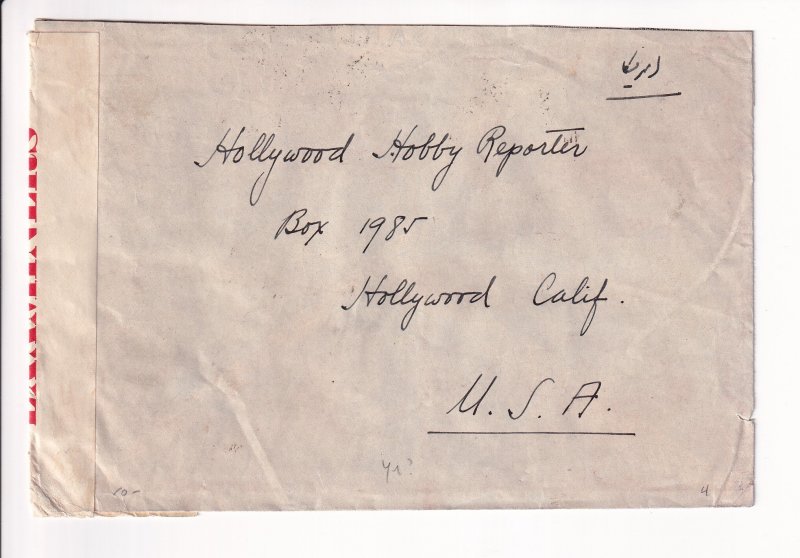 امریکا
Hollywood Hobby Reporter
Box 1985
Hollywood Calif.
U. S. A.
10-
4